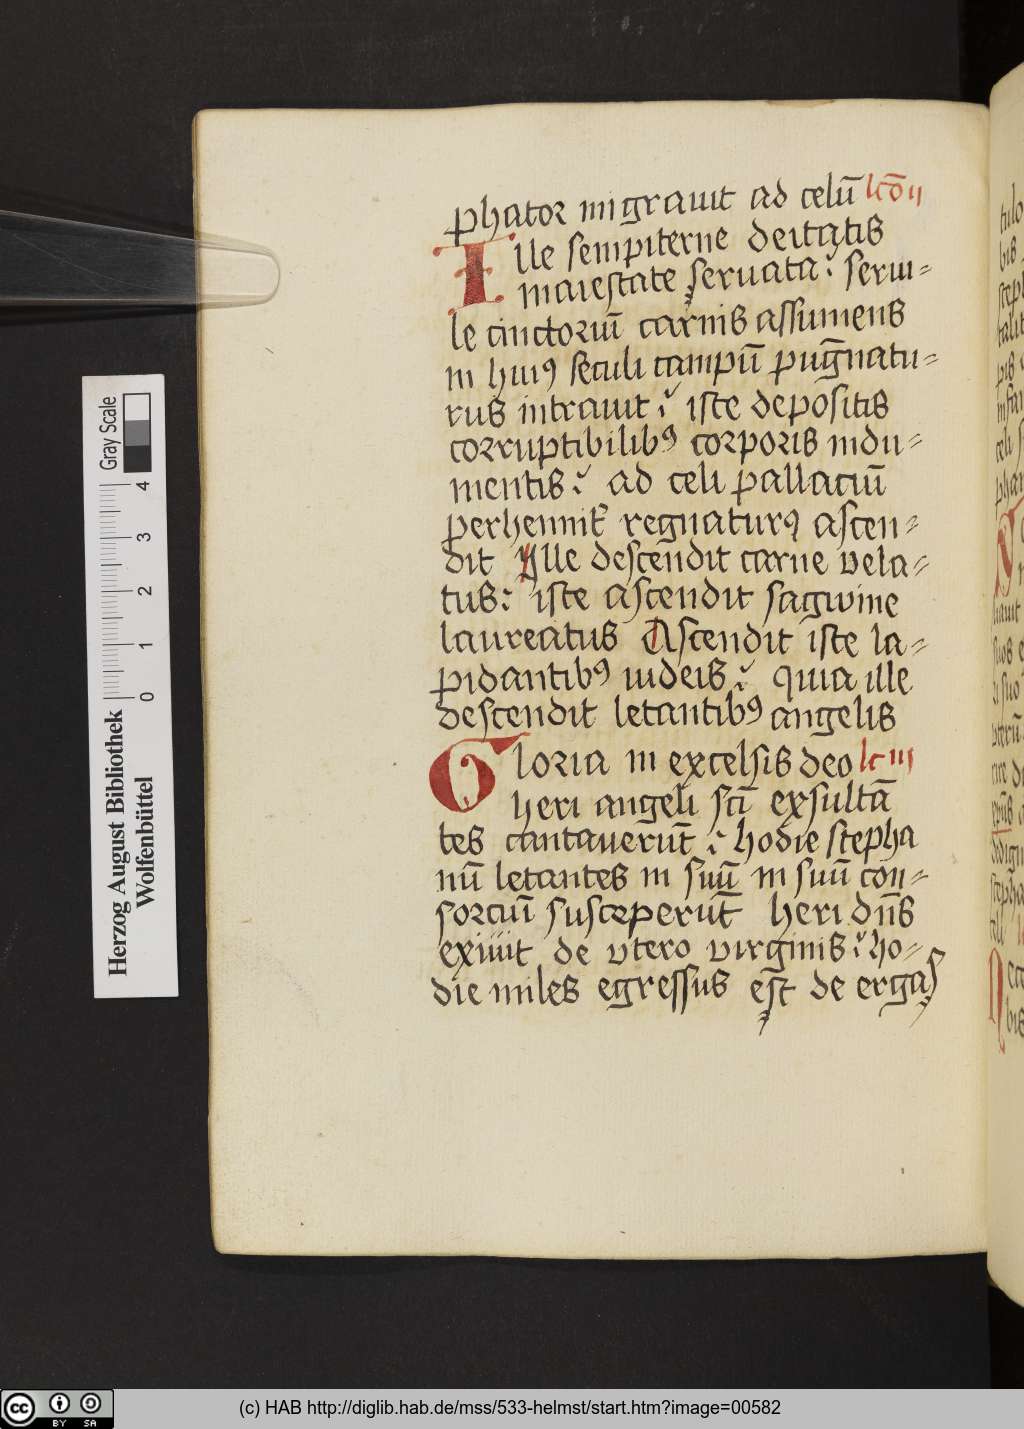 phator migrauit ad celū lcō ii
Ille sempiterne deitatis
maiestate seruata: serui=
le cinctoriū carnis assumens
in huiꝯ seculi campū pug̅natu=
rus intrauit: iste depositis
corruptibilibꝯ corporis indu=
mentis: ad celi pallaciū
perhennit̕ regnaturꝯ ascen=
dit Ylle descendit carne vela=
tus: iste ascendit sagwine
laureatus Ascendit iste la=
pidantibꝯ iudeis: quia ille
descendit letantibꝯ angelis
Gloria in excelsis deo lc iii
heri angeli sc̅i exsultā
tes cantauerūt: hodie stepha
nū letantes in suū in suū con̅=
sorciū susceperūt heri dn̅s
exiuit de vtero virginis: ho=
die miles egressus est de erga
Gray Scale
0 1 2 3 4
Herzog August Bibliothek
Wolfenbüttel
cc BY SA
(c) HAB http://diglib.hab.de/mss/533-helmst/start.htm?image=00582